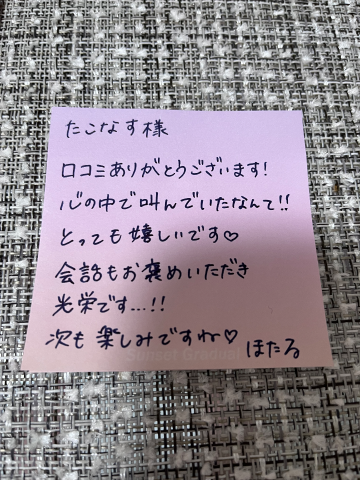 たこなす様
口コミありがとうございます!
心の中で叫んでいたなんて!!
とっても嬉しいです♡
会話もお褒めいただき
光栄です...!!
次も楽しみですね♡
ほたる
Sunset Gradual